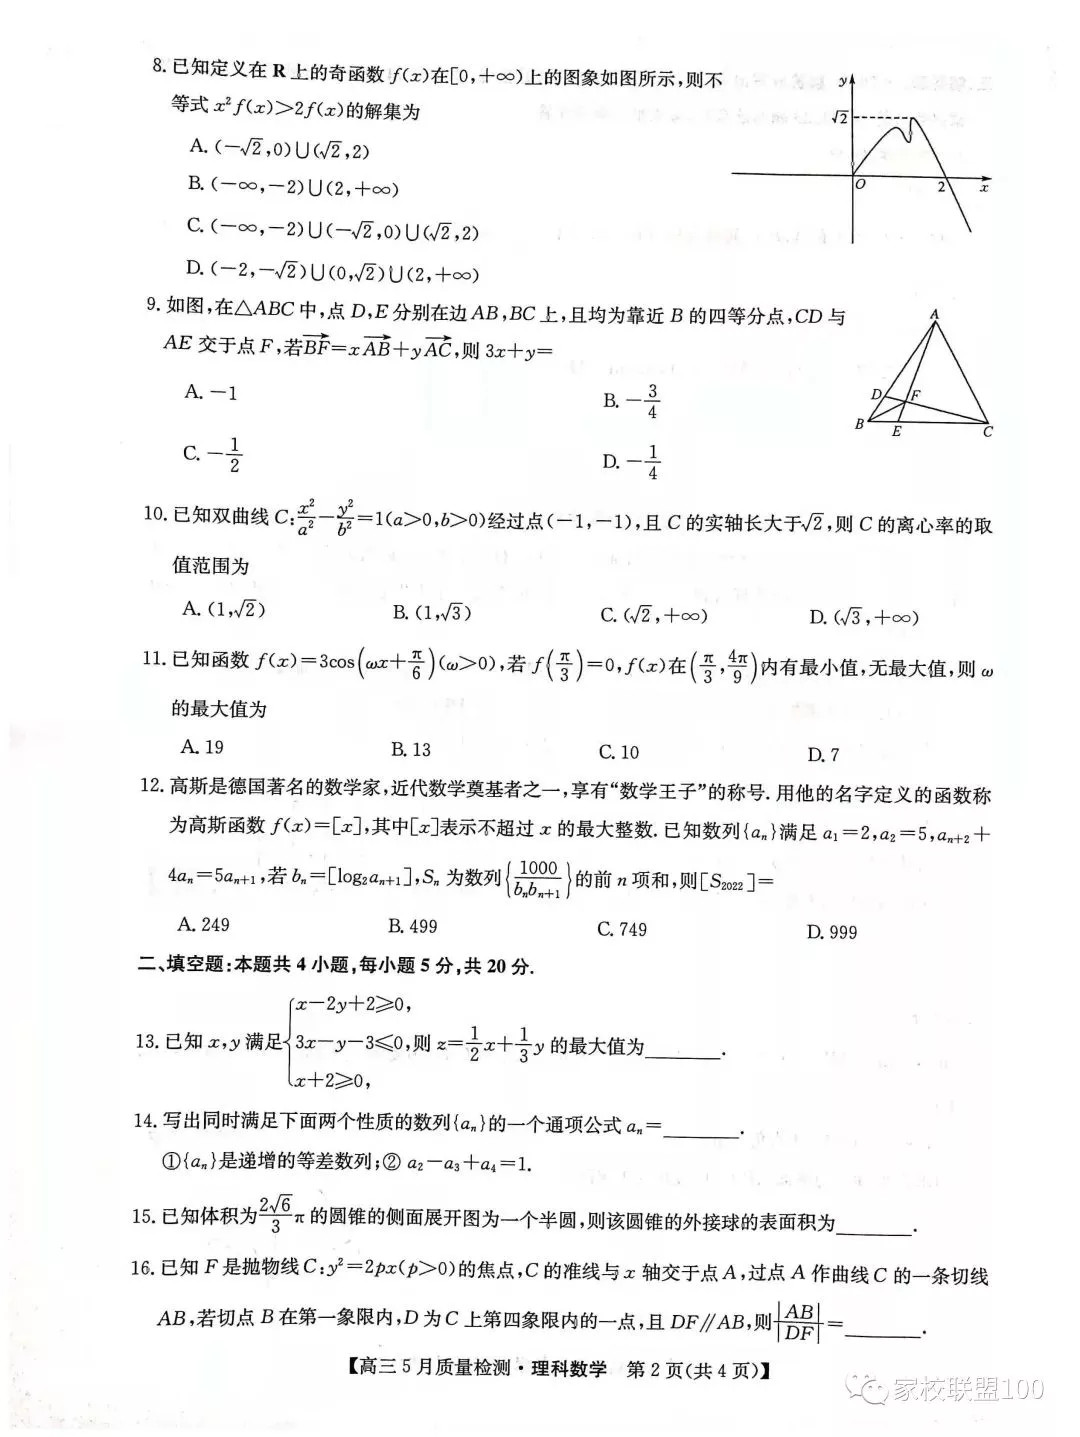 8. 已知定义在 R 上的奇函数 f(x)在[0,+∞)上的图象如图所示,则不
等式 x²f(x)>2f(x)的解集为
A. (-√2,0)∪(√2,2)
B. (-∞,-2)∪(2,+∞)
C. (-∞,-2)∪(-√2,0)∪(√2,2)
D. (-2,-√2)∪(0,√2)∪(2,+∞)
y
√2
O
2
x
9. 如图,在△ABC 中,点 D,E 分别在边 AB,BC 上,且均为靠近 B 的四等分点,CD 与
AE 交于点 F,若BF→=xAB→+yAC→,则 3x+y=
A. -1
B. -3/4
C. -1/2
D. -1/4
A
D
F
B
E
C
10. 已知双曲线 C:x²/a²-y²/b²=1(a>0,b>0)经过点(-1,-1),且 C 的实轴长大于√2,则 C 的离心率的取
值范围为
A. (1,√2)
B. (1,√3)
C. (√2,+∞)
D. (√3,+∞)
11. 已知函数 f(x)=3cos(ωx+π/6)(ω>0),若 f(π/3)=0,f(x)在(π/3,4π/9)内有最小值,无最大值,则 ω
的最大值为
A. 19
B. 13
C. 10
D. 7
12. 高斯是德国著名的数学家,近代数学奠基者之一,享有“数学王子”的称号. 用他的名字定义的函数称
为高斯函数 f(x)=[x],其中[x]表示不超过 x 的最大整数. 已知数列{aₙ}满足 a₁=2,a₂=5,aₙ₊₂+
4aₙ=5aₙ₊₁,若 bₙ=[log₂aₙ₊₁],Sₙ 为数列{1000/bₙbₙ₊₁}的前 n 项和,则[S₂₀₂₂]=
A. 249
B. 499
C. 749
D. 999
二、填空题:本题共 4 小题,每小题 5 分,共 20 分.
13. 已知 x,y 满足{x-2y+2≥0, 3x-y-3≤0, x+2≥0, 则 z=1/2x+1/3y 的最大值为________.
14. 写出同时满足下面两个性质的数列{aₙ}的一个通项公式 aₙ=________.
①{aₙ}是递增的等差数列;② a₂-a₃+a₄=1.
15. 已知体积为2√6/3π 的圆锥的侧面展开图为一个半圆,则该圆锥的外接球的表面积为________.
16. 已知 F 是抛物线 C:y²=2px(p>0)的焦点,C 的准线与 x 轴交于点 A,过点 A 作曲线 C 的一条切线
AB,若切点 B 在第一象限内,D 为 C 上第四象限内的一点,且 DF∥AB,则|AB|/|DF|=________.
【高三 5 月质量检测·理科数学 第 2 页(共 4 页)】
家校联盟100